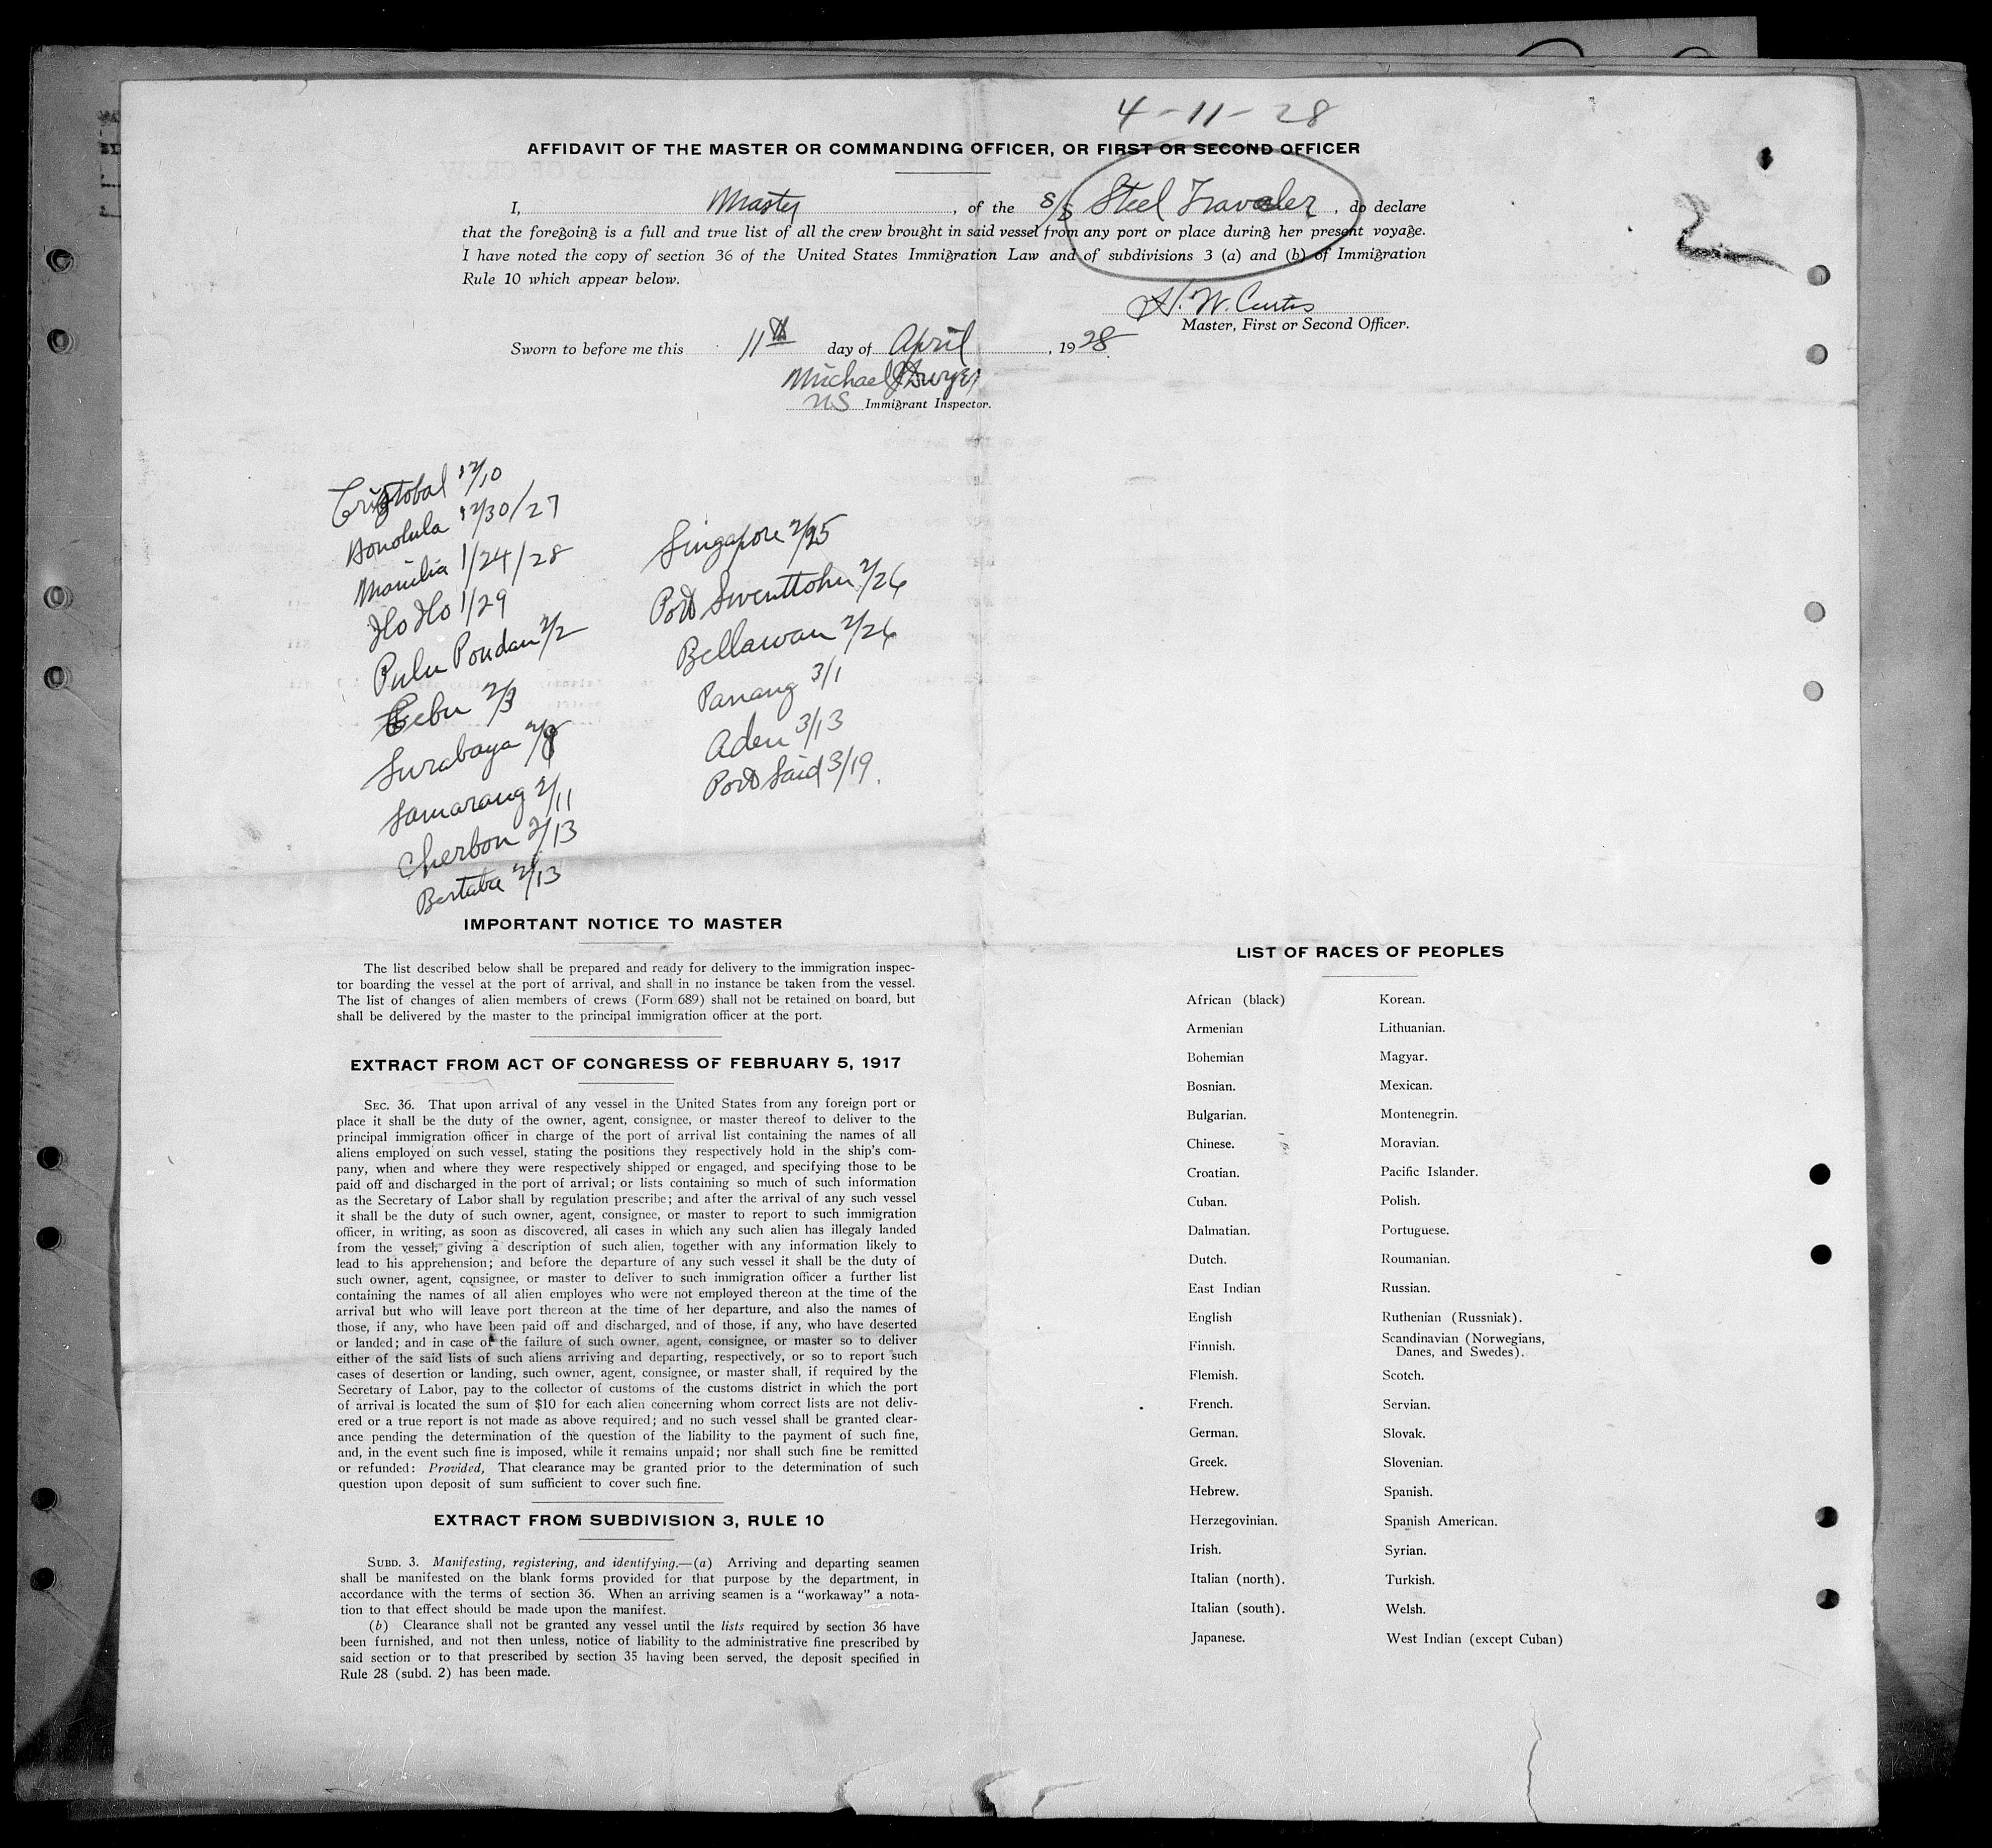 4-11-28
AFFIDAVIT OF THE MASTER OR COMMANDING OFFICER, OR FIRST OR SECOND OFFICER
I, Master, of the S/S Steel Traveler, do declare
that the foregoing is a full and true list of all the crew brought in said vessel from any port or place during her present voyage.
I have noted the copy of section 36 of the United States Immigration Law and of subdivisions 3 (a) and (b) of Immigration
Rule 10 which appear below.
2
H. W. Curtis
Master, First or Second Officer.
Sworn to before me this 11th day of April, 1928.
Michael J Dwyer
US Immigrant Inspector.
Cristobal 12/10
Honolulu 12/30/27
Manilia 1/24/28
Ilo Ilo 1/29
Pulu Pondan 2/2
Cebu 2/3
Surabaya 2/8
Samarang 2/11
Cherbon 2/13
Bartaba 2/13
Singapore 2/25
Port Swenttohn 2/26
Bellawan 2/26
Panang 3/1
Aden 3/13
Port Said 3/19.
IMPORTANT NOTICE TO MASTER
The list described below shall be prepared and ready for delivery to the immigration inspec-
tor boarding the vessel at the port of arrival, and shall in no instance be taken from the vessel.
The list of changes of alien members of crews (Form 689) shall not be retained on board, but
shall be delivered by the master to the principal immigration officer at the port.
EXTRACT FROM ACT OF CONGRESS OF FEBRUARY 5, 1917
SEC. 36. That upon arrival of any vessel in the United States from any foreign port or
place it shall be the duty of the owner, agent, consignee, or master thereof to deliver to the
principal immigration officer in charge of the port of arrival list containing the names of all
aliens employed on such vessel, stating the positions they respectively hold in the ship's com-
pany, when and where they were respectively shipped or engaged, and specifying those to be
paid off and discharged in the port of arrival; or lists containing so much of such information
as the Secretary of Labor shall by regulation prescribe; and after the arrival of any such vessel
it shall be the duty of such owner, agent, consignee, or master to report to such immigration
officer, in writing, as soon as discovered, all cases in which any such alien has illegaly landed
from the vessel, giving a description of such alien, together with any information likely to
lead to his apprehension; and before the departure of any such vessel it shall be the duty of
such owner, agent, consignee, or master to deliver to such immigration officer a further list
containing the names of all alien employes who were not employed thereon at the time of the
arrival but who will leave port thereon at the time of her departure, and also the names of
those, if any, who have been paid off and discharged, and of those, if any, who have deserted
or landed; and in case of the failure of such owner, agent, consignee, or master so to deliver
either of the said lists of such aliens arriving and departing, respectively, or so to report such
cases of desertion or landing, such owner, agent, consignee, or master shall, if required by the
Secretary of Labor, pay to the collector of customs of the customs district in which the port
of arrival is located the sum of $10 for each alien concerning whom correct lists are not deliv-
ered or a true report is not made as above required; and no such vessel shall be granted clear-
ance pending the determination of the question of the liability to the payment of such fine,
and, in the event such fine is imposed, while it remains unpaid; nor shall such fine be remitted
or refunded: Provided, That clearance may be granted prior to the determination of such
question upon deposit of sum sufficient to cover such fine.
EXTRACT FROM SUBDIVISION 3, RULE 10
SUBD. 3. Manifesting, registering, and identifying.—(a) Arriving and departing seamen
shall be manifested on the blank forms provided for that purpose by the department, in
accordance with the terms of section 36. When an arriving seamen is a "workaway" a nota-
tion to that effect should be made upon the manifest.
(b) Clearance shall not be granted any vessel until the lists required by section 36 have
been furnished, and not then unless, notice of liability to the administrative fine prescribed by
said section or to that prescribed by section 35 having been served, the deposit specified in
Rule 28 (subd. 2) has been made.
LIST OF RACES OF PEOPLES
African (black)
Armenian
Bohemian
Bosnian.
Bulgarian.
Chinese.
Croatian.
Cuban.
Dalmatian.
Dutch.
East Indian
English
Finnish.
Flemish.
French.
German.
Greek.
Hebrew.
Herzegovinian.
Irish.
Italian (north).
Italian (south).
Japanese.
Korean.
Lithuanian.
Magyar.
Mexican.
Montenegrin.
Moravian.
Pacific Islander.
Polish.
Portuguese.
Roumanian.
Russian.
Ruthenian (Russniak).
Scandinavian (Norwegians,
Danes, and Swedes).
Scotch.
Servian.
Slovak.
Slovenian.
Spanish.
Spanish American.
Syrian.
Turkish.
Welsh.
West Indian (except Cuban)